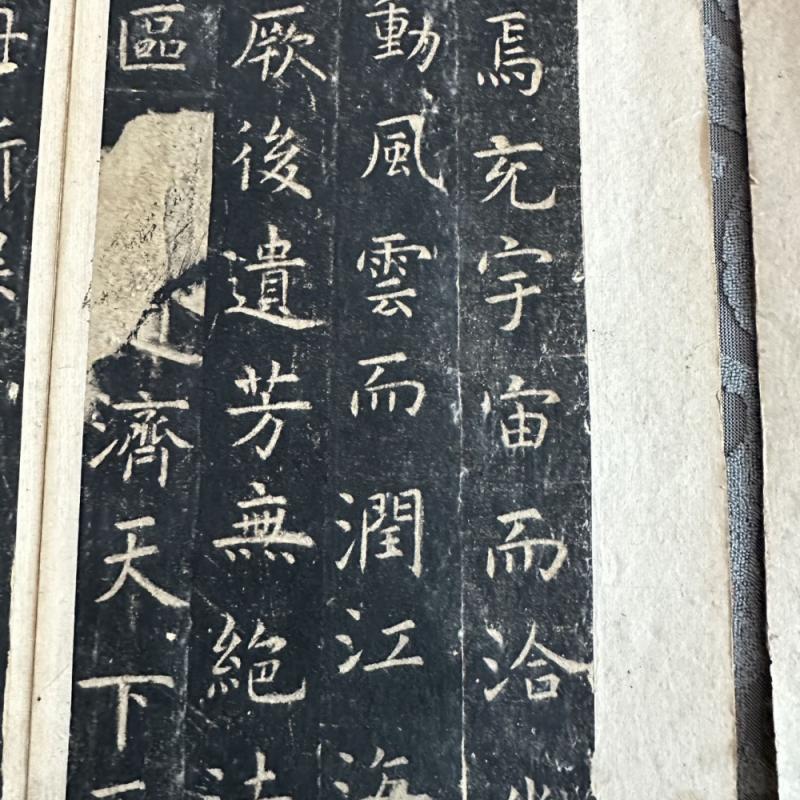 焉充宇宙而洽
動風雲而潤江海
厥後遺芳無絕
區濟天下